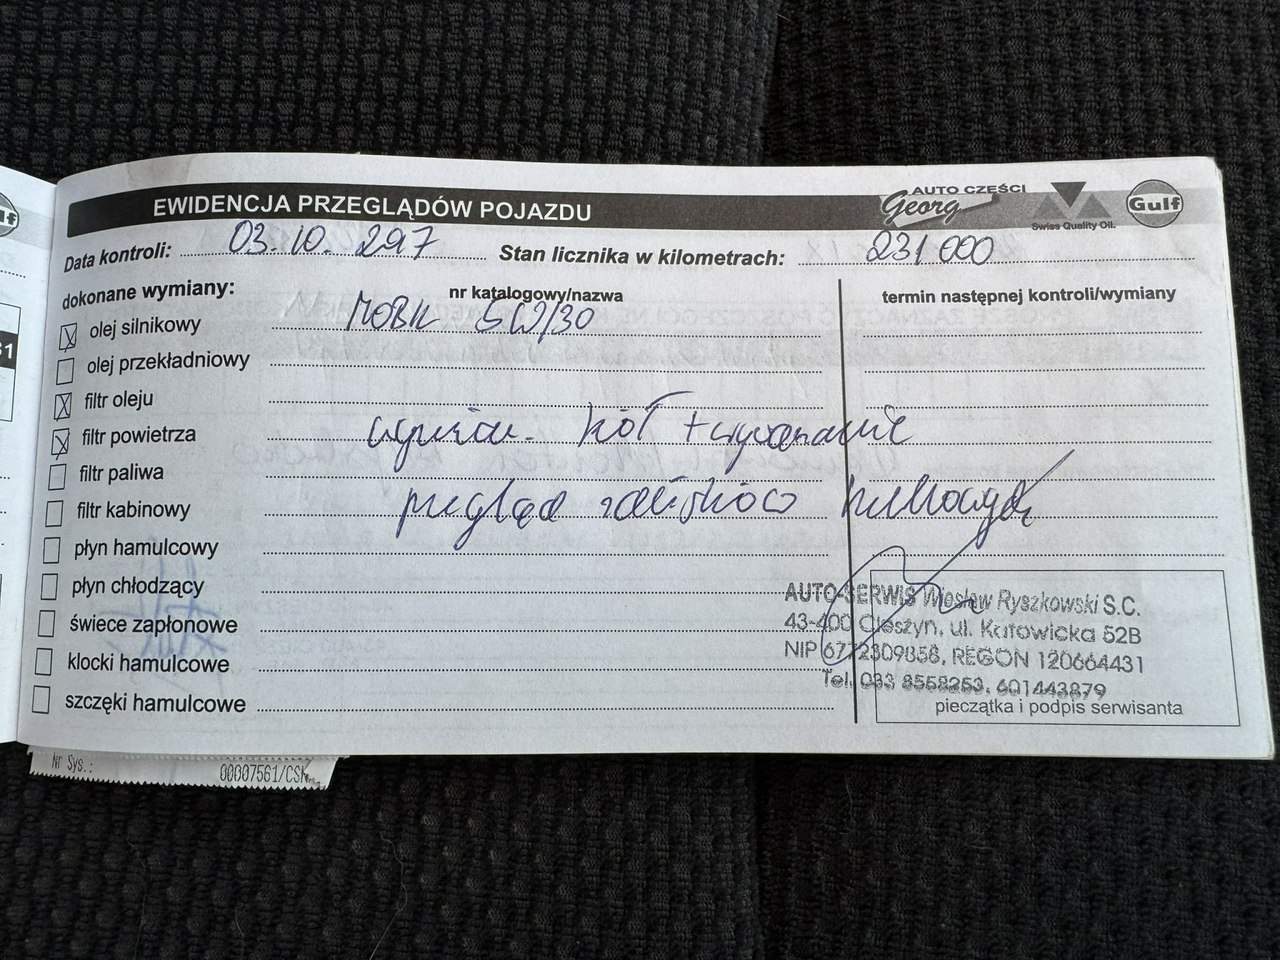 EWIDENCJA PRZEGLĄDÓW POJAZDU
AUTO CZĘŚCI
Georg
Swiss Quality Oil.
Gulf
Data kontroli: 03.10.2017 Stan licznika w kilometrach: 231 000
dokonane wymiany: nr katalogowy/nazwa termin następnej kontroli/wymiany
X olej silnikowy MOBIL 5W/30
olej przekładniowy
X filtr oleju
X filtr powietrza kół + wyważanie
filtr paliwa
filtr kabinowy zacisków
płyn hamulcowy
płyn chłodzący
świece zapłonowe
klocki hamulcowe
szczęki hamulcowe
AUTO-SERWIS Wiesław Ryszkowski S.C.
43-400 Cieszyn, ul. Katowicka 52B
REGON 120664431
Tel. 033 8558253, 601443879
pieczątka i podpis serwisanta
Nr Sys.: 00007561/CSK